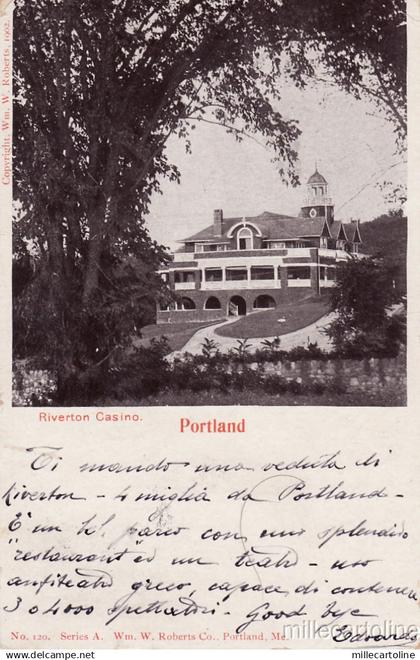 Copyright, Wm. W. Roberts, 1902.
Riverton Casino.
Portland
Ti mando una veduta di
Riverton - 4 miglia da Portland -
È un bel parco con uno splendido
"restaurant" ed un teatro - uso
anfiteatro greco, capace di contenere
3 o 4000 spettatori - Good bye
Edoardo
No. 120. Series A. Wm. W. Roberts Co., Portland, Me.
millecartoline
© www.millecartoline.com